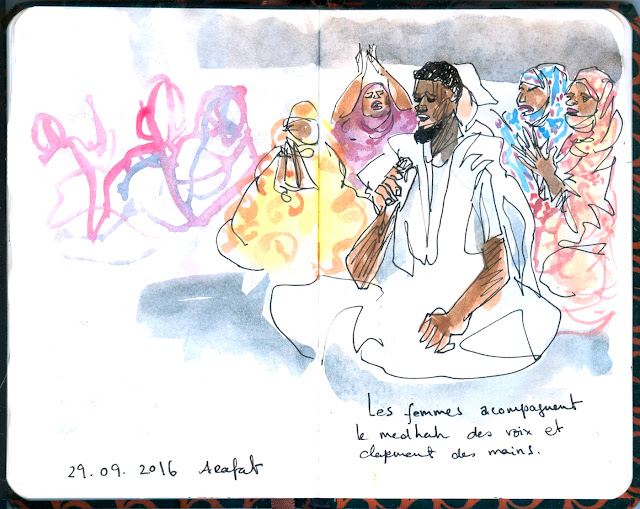 Les femmes acompagnent
le medhah des voix et
clapment des mains.
29.09.2016 Arafat